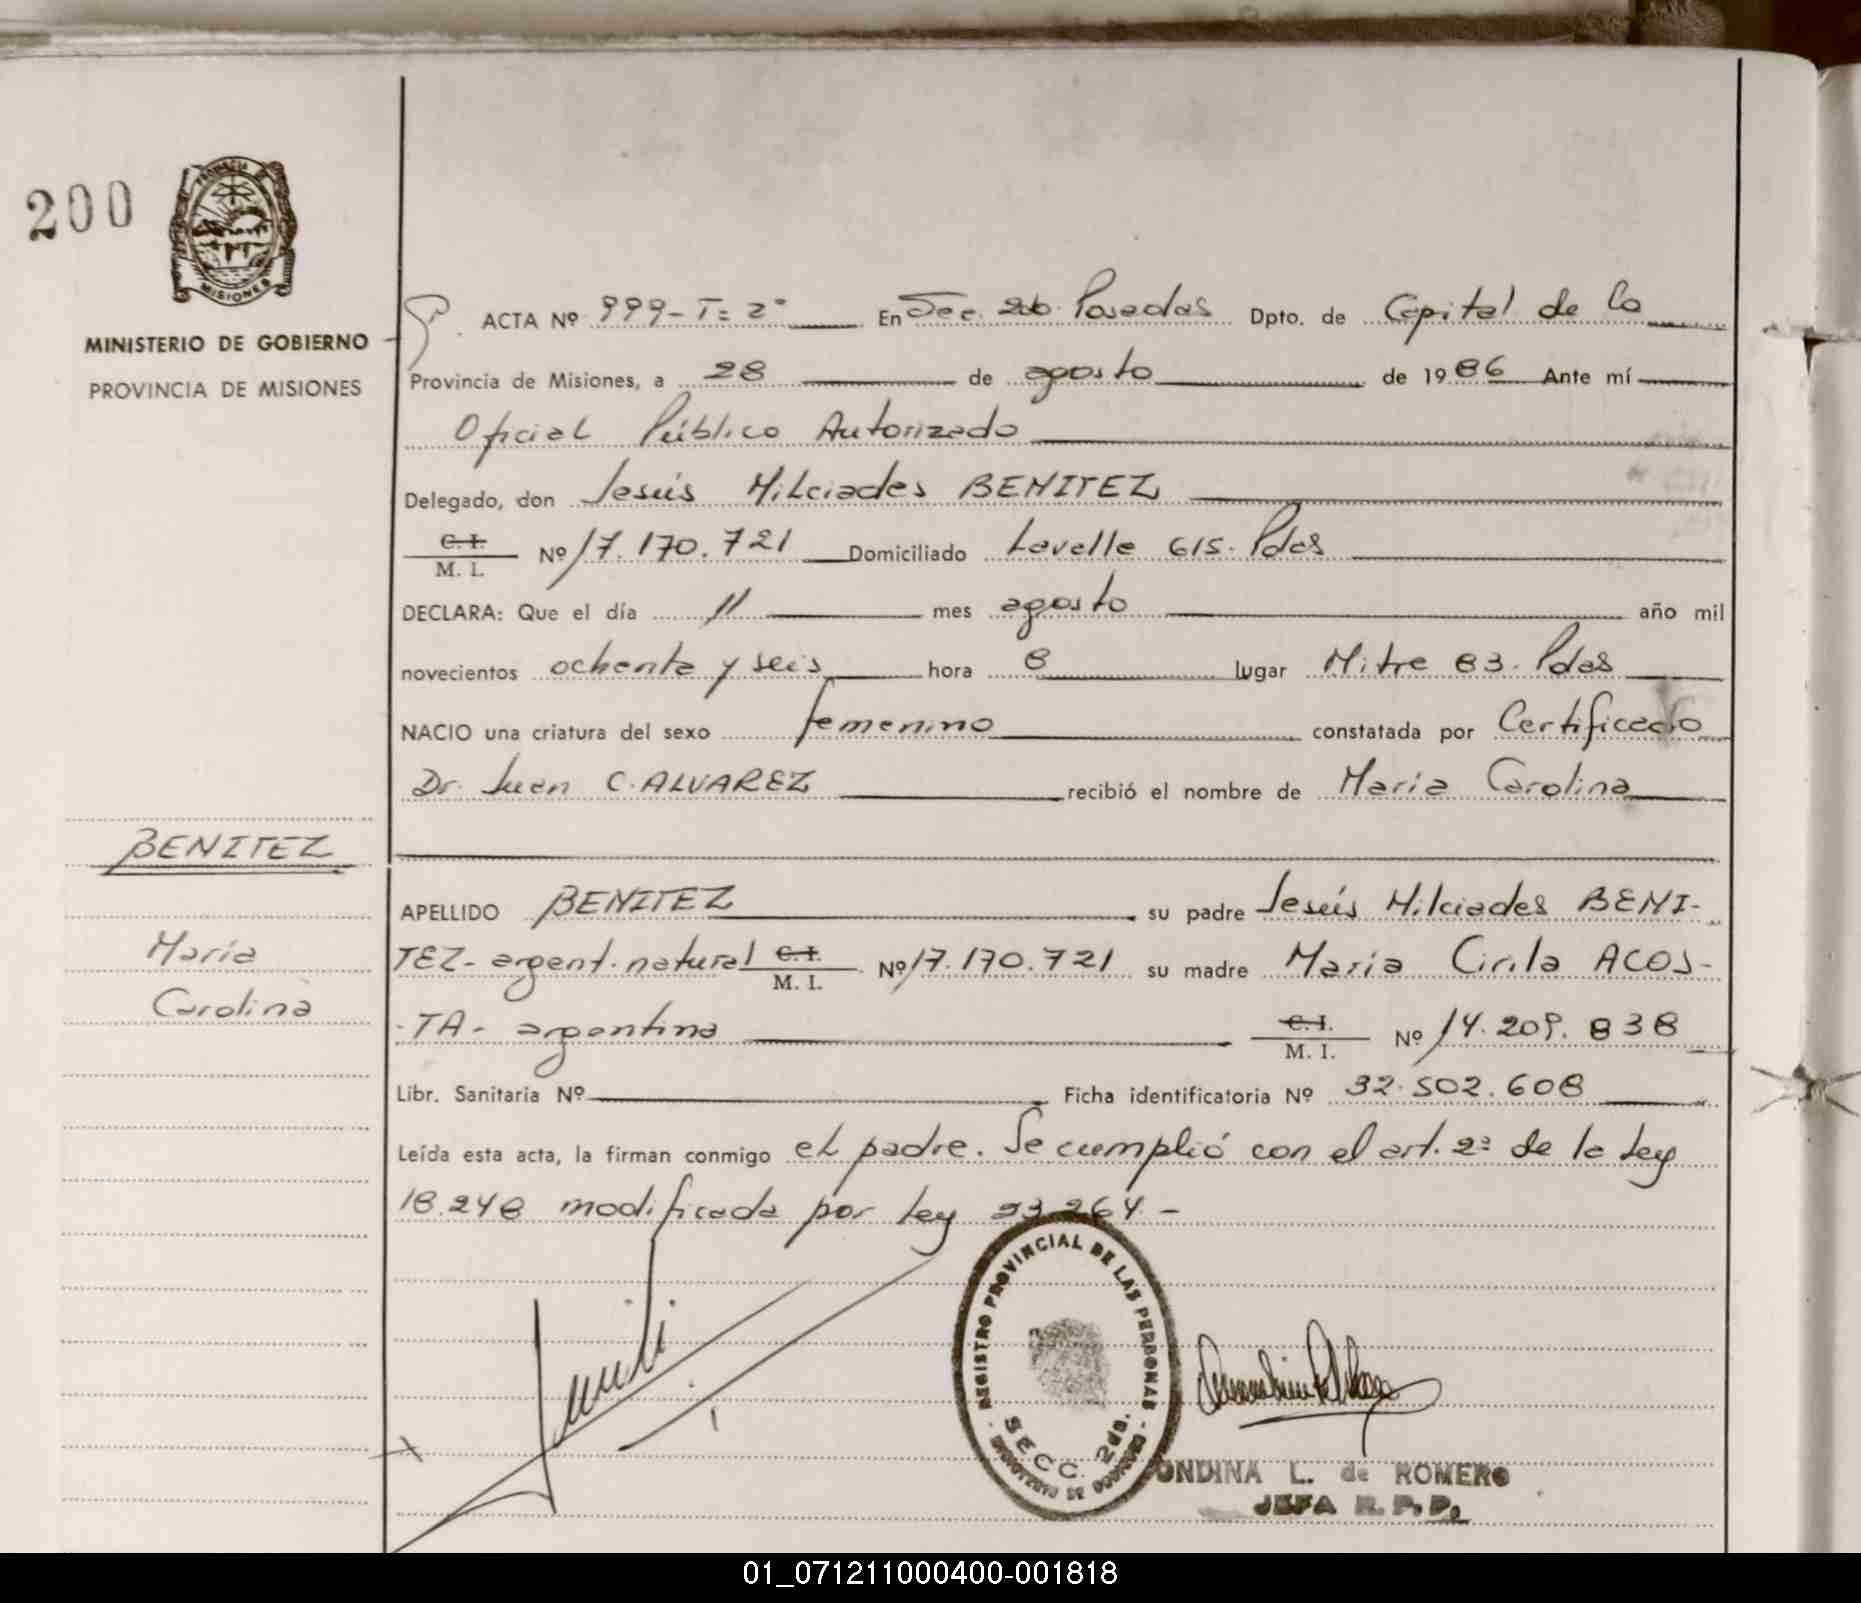 200
PROVINCIA DE
MISIONES
MINISTERIO DE GOBIERNO
PROVINCIA DE MISIONES
ACTA Nº 999-T= 2° En Sec. 2da. Posadas Dpto. de Capital de la
Provincia de Misiones, a 28 de agosto de 1986 Ante mí
Oficial Público Autorizado
Delegado, don Jesús Milciades BENITEZ
C. I.
M. I. Nº 17.170.721 Domiciliado Lavalle 615. Pdas
DECLARA: Que el día 11 mes agosto año mil
novecientos ochenta y seis hora 8 lugar Mitre 83. Pdas
NACIO una criatura del sexo femenino constatada por Certificado
Dr. Juan C. ALVAREZ recibió el nombre de María Carolina
BENITEZ
María
Carolina
APELLIDO BENITEZ su padre Jesús Milciades BENI-
TEZ- argent. natural C. I. M. I. Nº 17.170.721 su madre María Cirila ACOS-
-TA- argentina C. I. M. I. Nº 14.209.838
Libr. Sanitaria Nº Ficha identificatoria Nº 32.502.608
Leída esta acta, la firman conmigo el padre. Se cumplió con el art. 2º de la Ley
18.248 modificada por ley 23.264.-
REGISTRO PROVINCIAL DE LAS PERSONAS
SECC. 2da.
ONDINA L. de ROMERO
JEFA R. P. P.
01_071211000400-001818